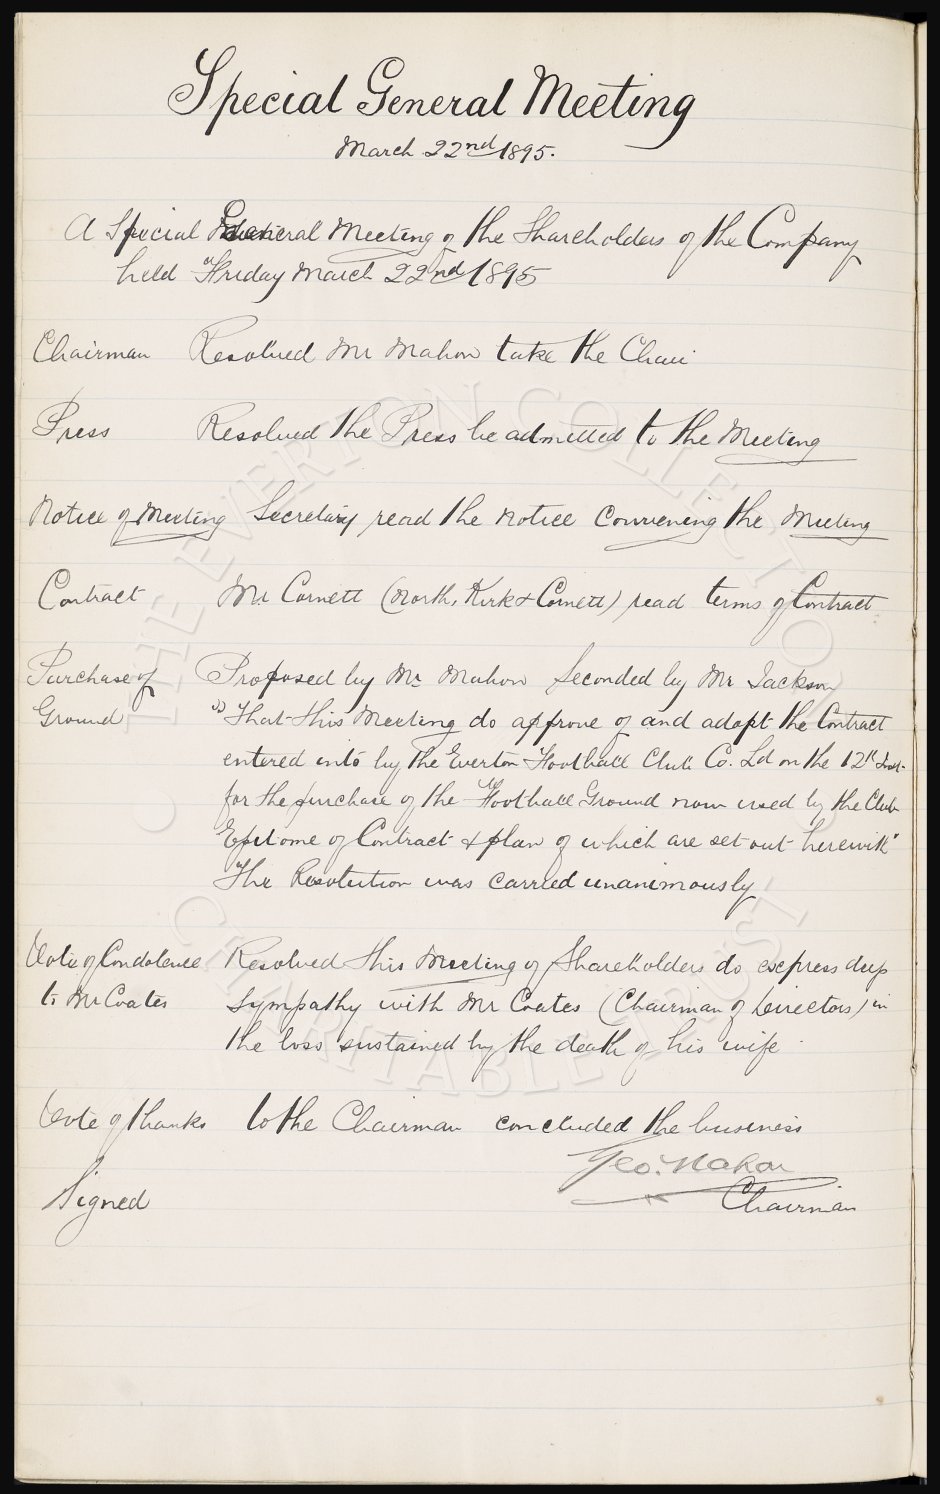 Special General Meeting
March 22nd 1895.
A Special General Meeting of the Shareholders of the Company
held Friday March 22nd 1895
Chairman Resolved Mr Mahon take the Chair
Press Resolved the Press be admitted to the Meeting
Notice of Meeting Secretary read the notice convening the Meeting
Contract Mr. Cornett (North, Kirk & Cornett) read terms of Contract
Purchase of Proposed by Mr. Mahon Seconded by Mr Jackson
Ground "That this Meeting do approve of and adopt the Contract
entered into by The Everton Football Club Co. Ld on the 12th Inst.
for the purchase of the Football Ground now used by the Club
Epitome of Contract & plan of which are set out herewith"
The Resolution was carried unanimously
Vote of Condolence Resolved this Meeting of Shareholders do express deep
to Mr Coates Sympathy with Mr Coates (Chairman of Directors) in
the loss sustained by the death of his wife.
Vote of thanks to the Chairman concluded the business
Geo. Mahon
Signed Chairman
© THE EVERTON COLLECTION
CHARITABLE TRUST